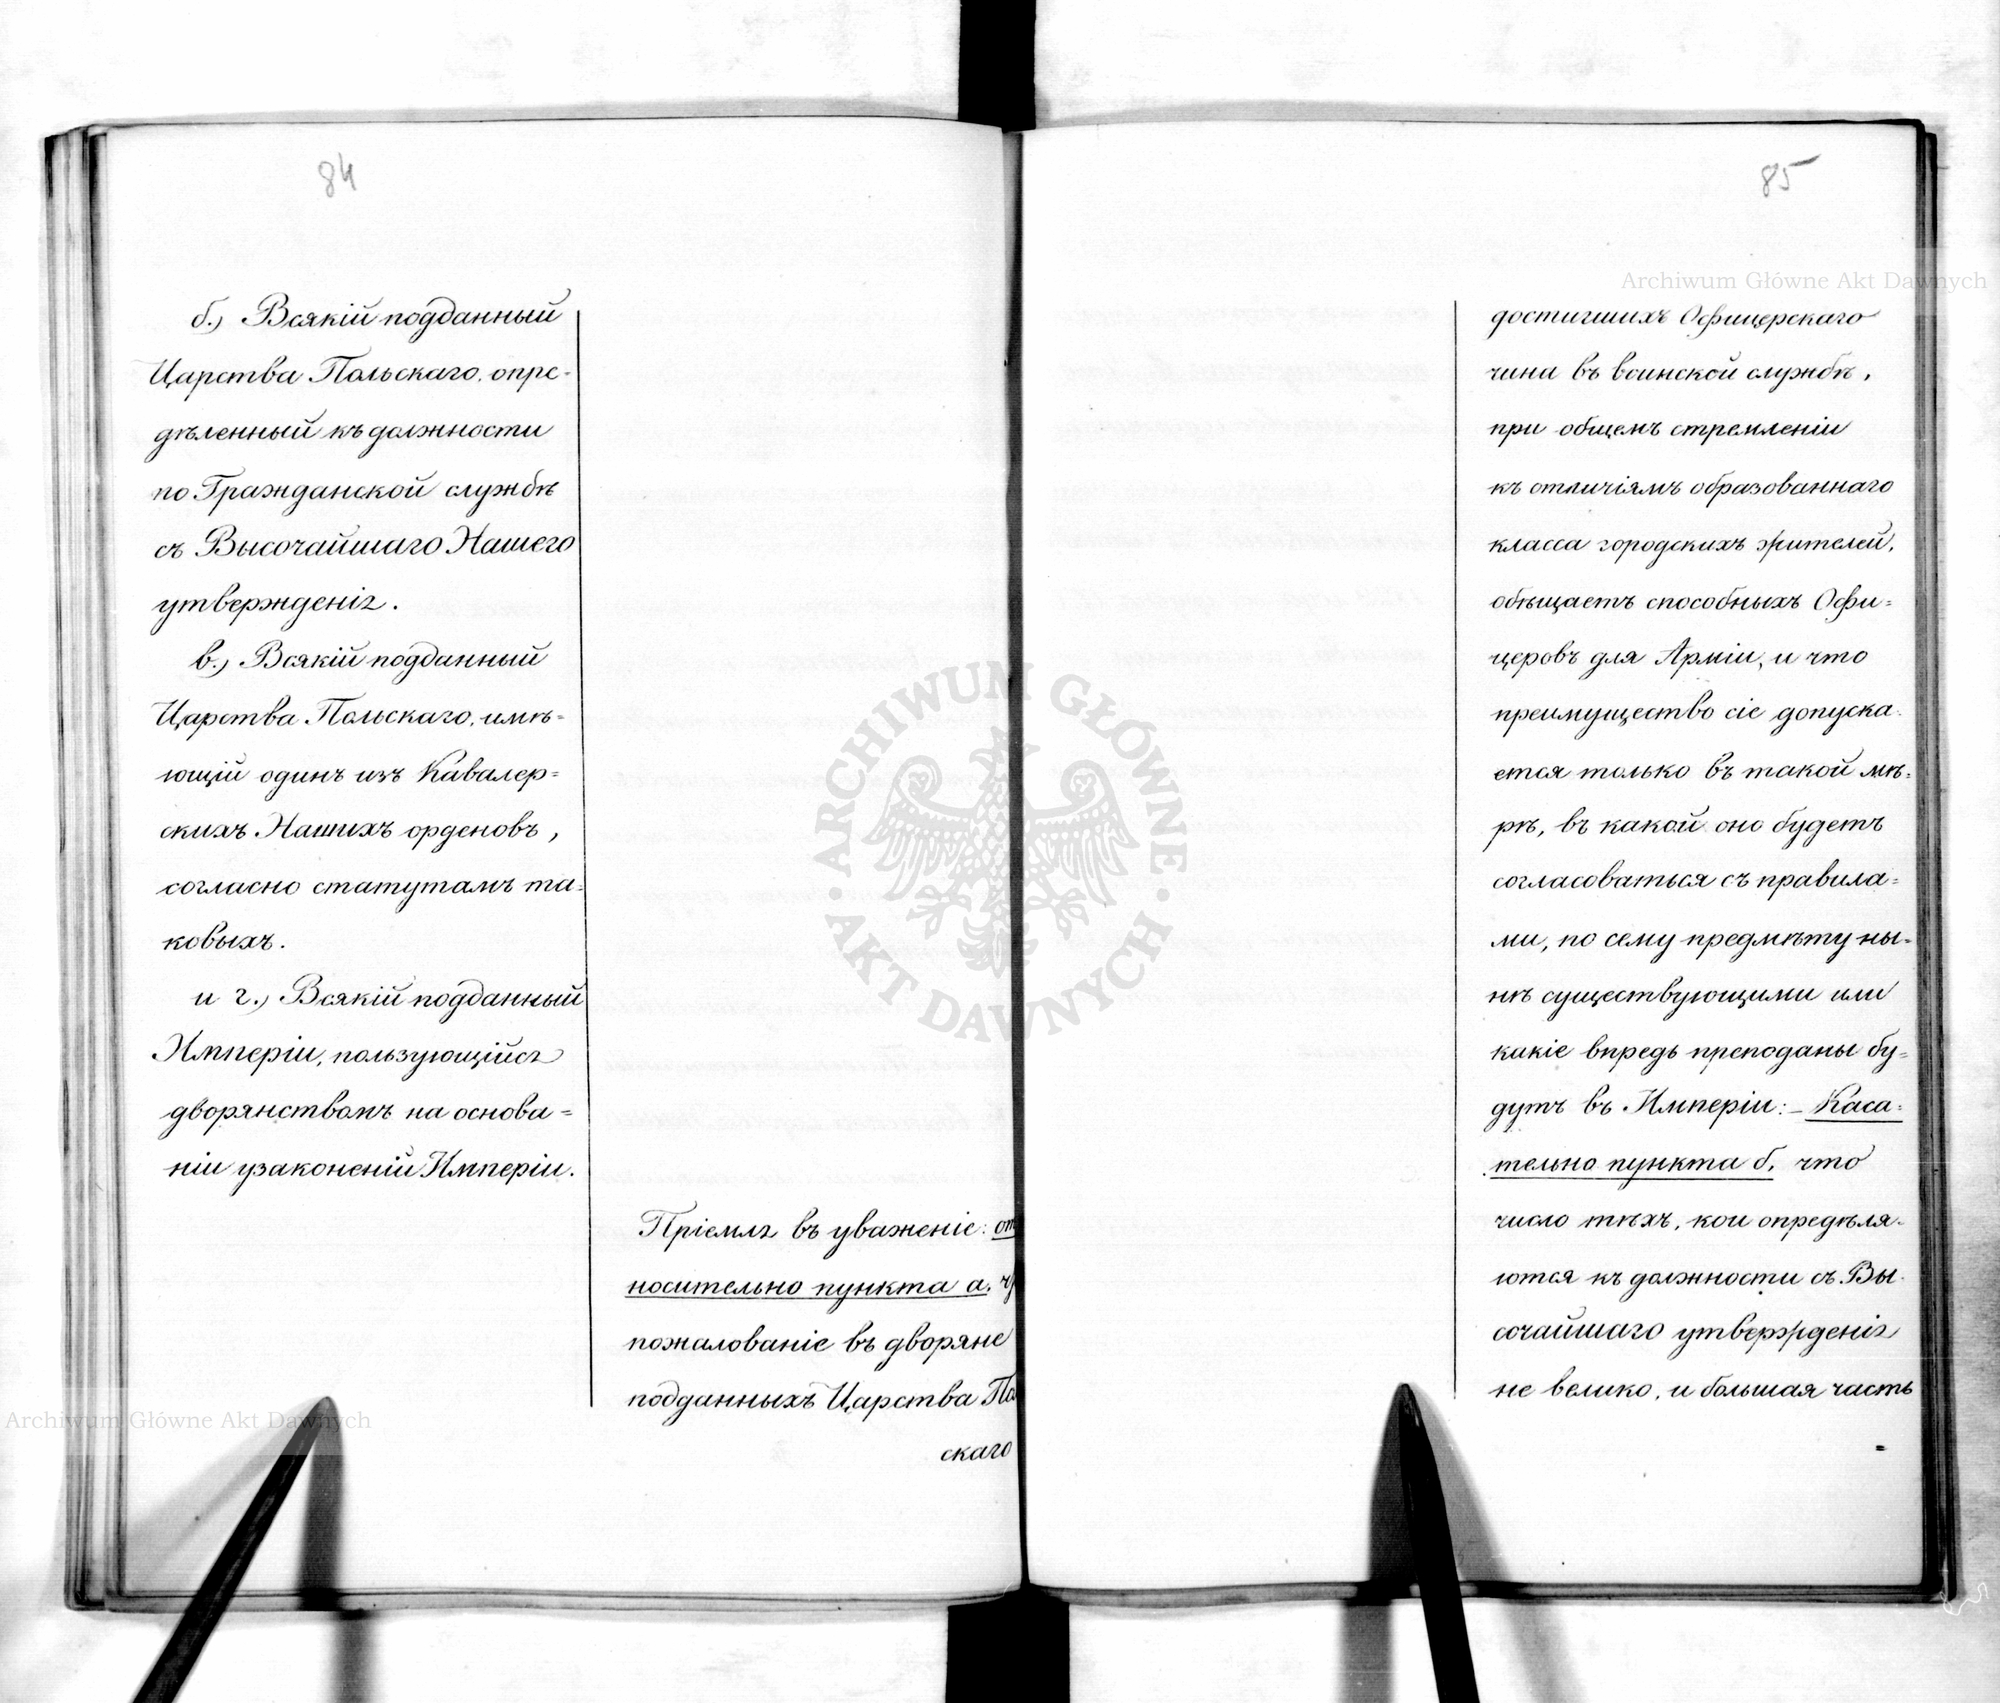 84
б.) Всякій подданный
Царства Польскаго, опре-
дѣленный къ должности
по Гражданской службѣ
съ Высочайшаго Нашего
утвержденія.
в.) Всякій подданный
Царства Польскаго, имѣ-
ющій одинъ изъ Кавалер-
скихъ Нашихъ орденовъ,
согласно статутамъ та-
ковыхъ.
и г.) Всякій подданный
Имперіи, пользующійся
дворянствомъ на основа-
ніи узаконеній Имперіи.
Пріемля въ уваженіе: от
носительно пункта а.
пожалованіе въ дворяне
подданныхъ Царства По
скаго
85
достигшихъ Офицерскаго
чина въ воинской службѣ,
при общемъ стремленіи
къ отличіямъ образованнаго
класса городскихъ жителей,
обѣщаетъ способныхъ Офи-
церовъ для Арміи, и что
преимущество сіе допуска-
ется только въ такой мѣ-
рѣ, въ какой оно будетъ
согласоваться съ правила-
ми, по сему предмѣту ны-
нѣ существующими или
какіе впредь преподаны бу-
дутъ въ Имперіи: – Каса-
тельно пункта б, что
число тѣхъ, кои опредѣля-
ются къ должности съ Вы-
сочайшаго утвержденія
не велико, и большая часть
Archiwum Główne Akt Dawnych
Archiwum Główne Akt Dawnych
ARCHIWUM GŁÓWNE · AKT DAWNYCH ·